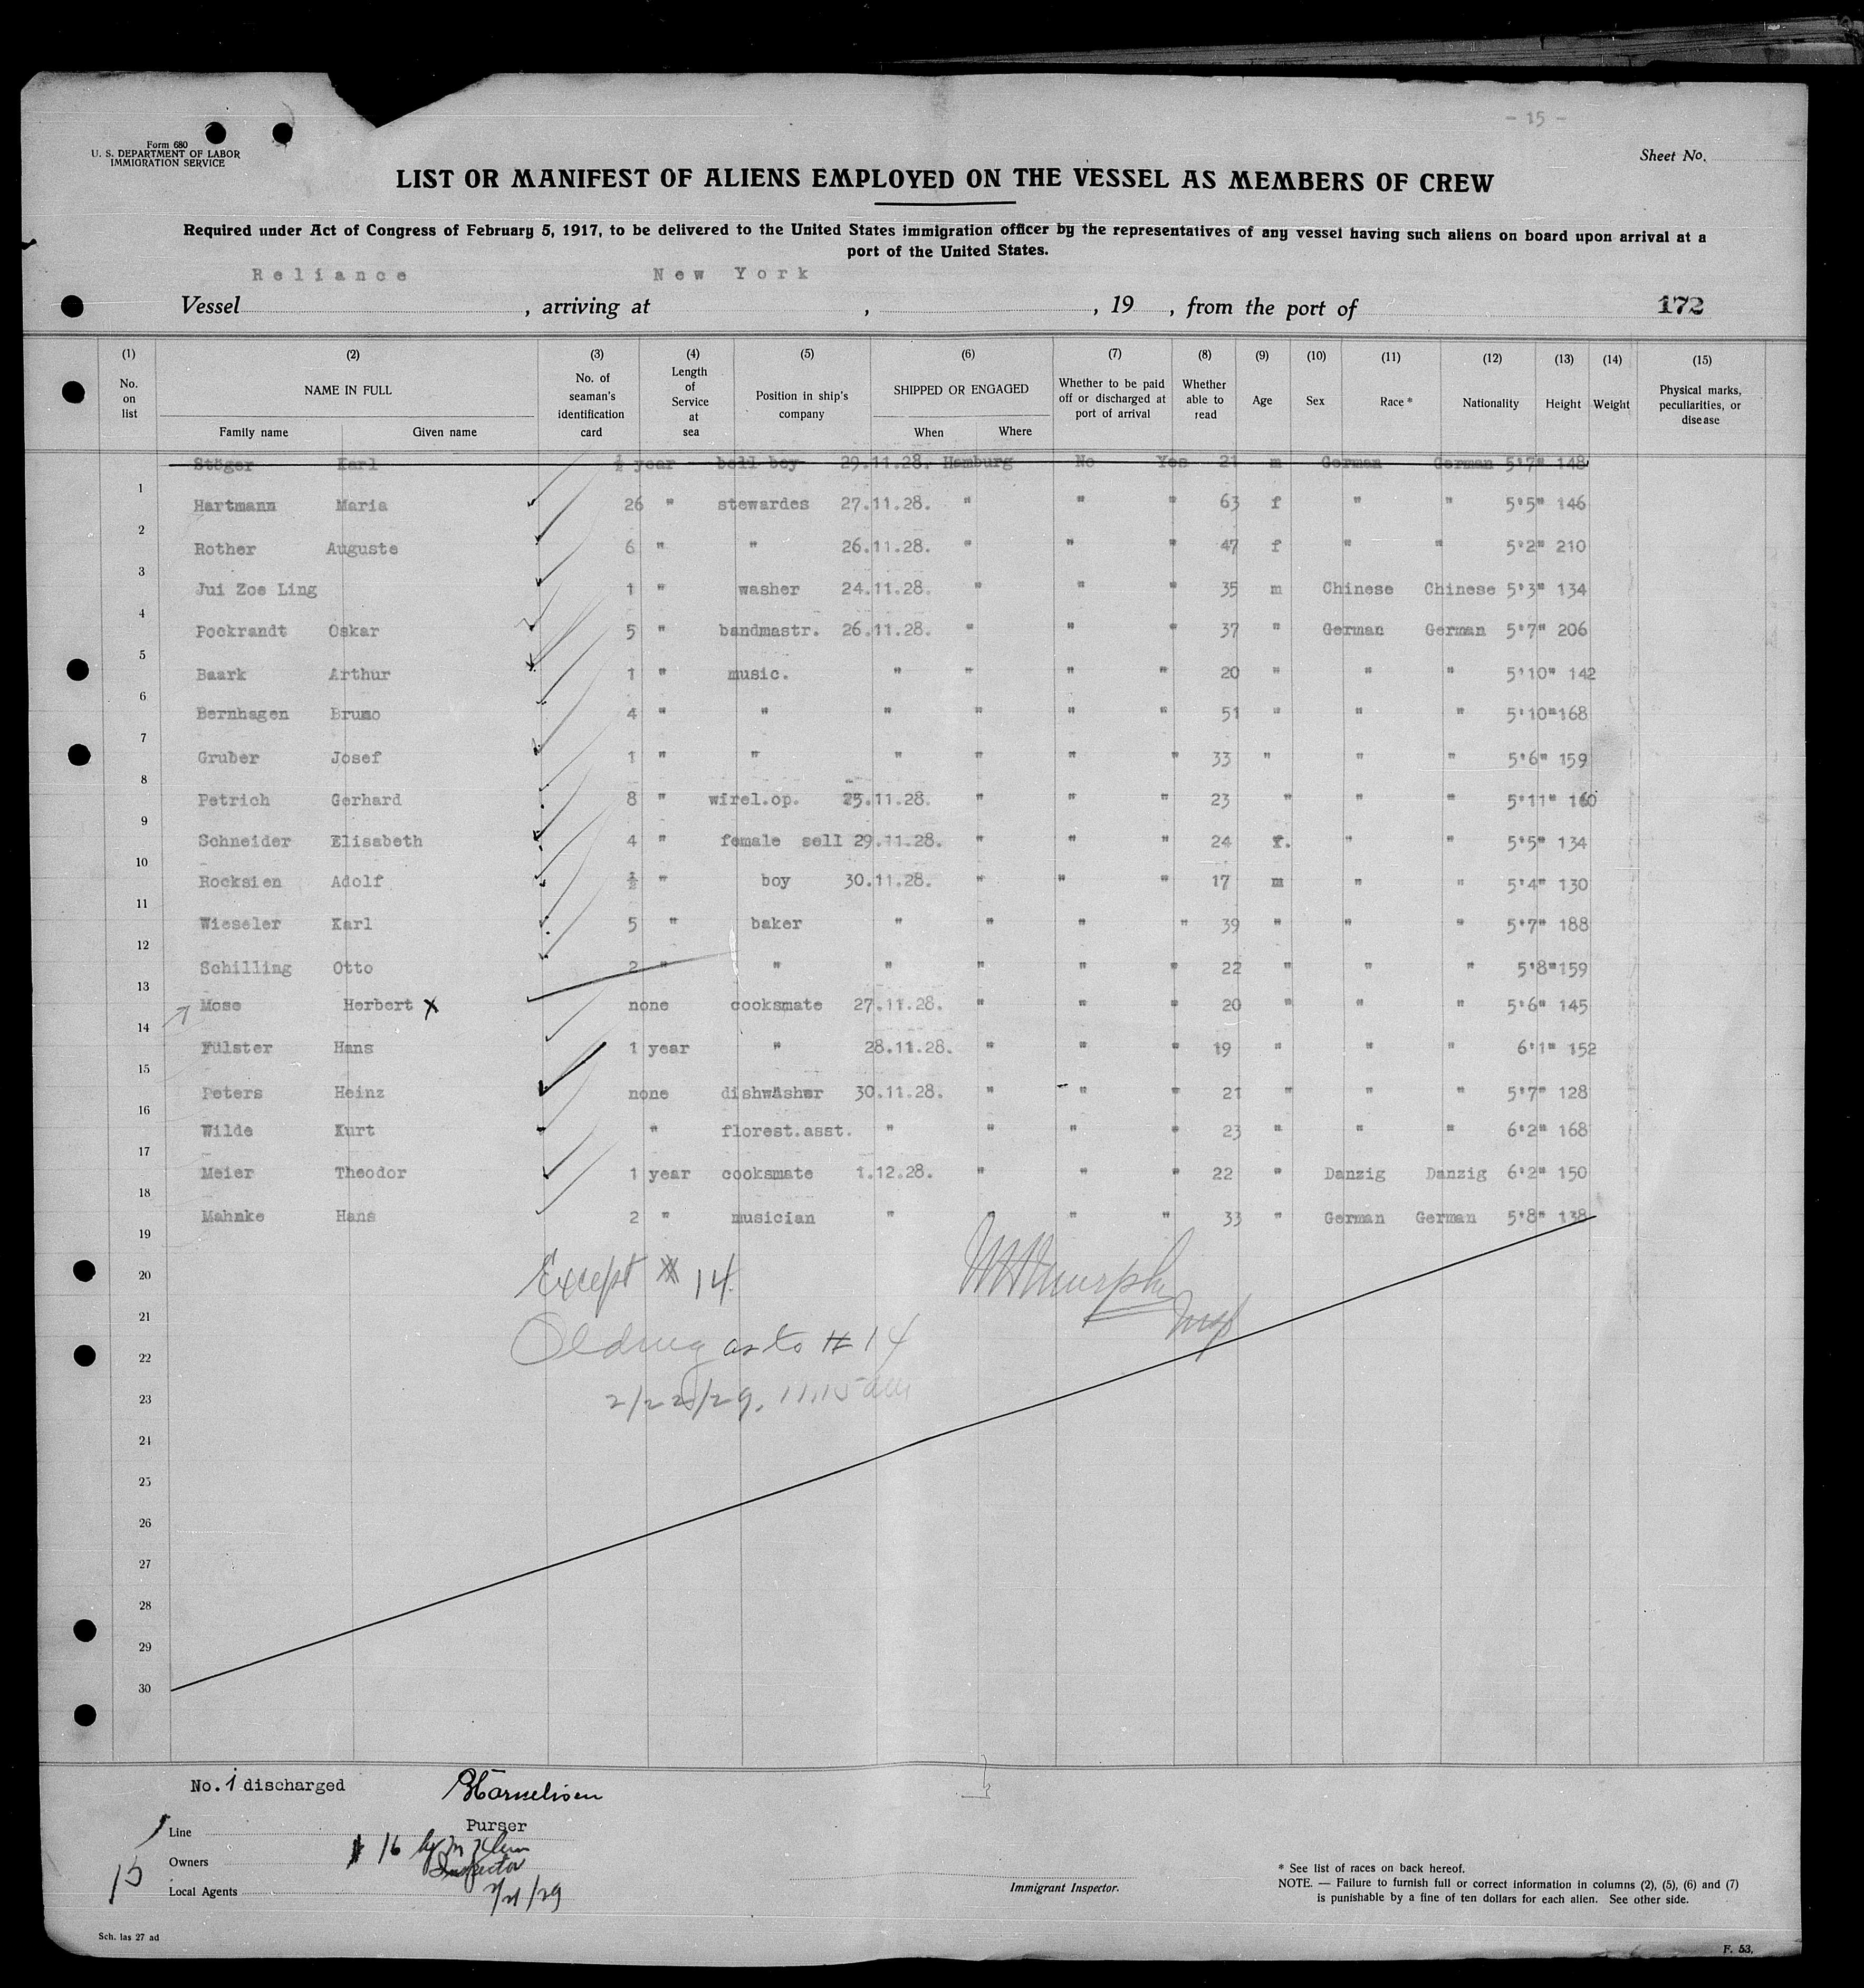 - 15 -
Form 680
U. S. DEPARTMENT OF LABOR
IMMIGRATION SERVICE
Sheet No.
LIST OR MANIFEST OF ALIENS EMPLOYED ON THE VESSEL AS MEMBERS OF CREW
Required under Act of Congress of February 5, 1917, to be delivered to the United States immigration officer by the representatives of any vessel having such aliens on board upon arrival at a
port of the United States.
Reliance New York
Vessel , arriving at , , 19 , from the port of 172
(1) (2) (3) (4) (5) (6) (7) (8) (9) (10) (11) (12) (13) (14) (15)
No. on list NAME IN FULL No. of seaman's identification card Length of Service at sea Position in ship's company SHIPPED OR ENGAGED Whether to be paid off or discharged at port of arrival Whether able to read Age Sex Race * Nationality Height Weight Physical marks, peculiarities, or disease
Family name Given name When Where
Stöger Karl ½ year bell boy 29.11.28. Hamburg No Yes 21 m German German 5'7" 148
1 Hartmann Maria 26 " stewardes 27.11.28. " " " 63 f " " 5'5" 146
2 Rother Auguste 6 " " 26.11.28. " " " 47 f " " 5'2" 210
3 Jui Zoe Ling 1 " washer 24.11.28. " " " 35 m Chinese Chinese 5'3" 134
4 Pockrandt Oskar 5 " bandmastr. 26.11.28. " " " 37 " German German 5'7" 206
5 Baark Arthur 1 " music. " " " " 20 " " " 5'10" 142
6 Bernhagen Bruno 4 " " " " " " 51 " " " 5'10" 168
7 Gruber Josef 1 " " " " " " 33 " " " 5'6" 159
8 Petrich Gerhard 8 " wirel.op. 25.11.28. " " " 23 " " " 5'11" 160
9 Schneider Elisabeth 4 " female sell 29.11.28. " " " 24 f. " " 5'5" 134
10 Rocksien Adolf ½ " boy 30.11.28. " " " 17 m " " 5'4" 130
11 Wieseler Karl 5 " baker " " " " 39 " " " 5'7" 188
12 Schilling Otto 2 " " " " " " 22 " " " 5'8" 159
13 Mose Herbert X none cooksmate 27.11.28. " " " 20 " " " 5'6" 145
14 Fülster Hans 1 year " 28.11.28. " " " 19 " " " 6'1" 152
15 Peters Heinz none dishwasher 30.11.28. " " " 21 " " " 5'7" 128
16 Wilde Kurt " florest.asst. " " " " 23 " " " 6'2" 168
17 Meier Theodor 1 year cooksmate 1.12.28. " " " 22 " Danzig Danzig 6'2" 150
18 Mahnke Hans 2 " musician " " " " 33 " German German 5'8" 138
19
20 Except # 14.
21
22 as to # 14
23 2/22/29, 11.15 am
24
25
26
27
28
29
30
No. 1 discharged
Purser
Line
# 16 by
Owners
Inspector
15
Local Agents
2/21/29
Immigrant Inspector.
* See list of races on back hereof.
NOTE. — Failure to furnish full or correct information in columns (2), (5), (6) and (7)
is punishable by a fine of ten dollars for each alien. See other side.
Sch. las 27 ad
F. 53.